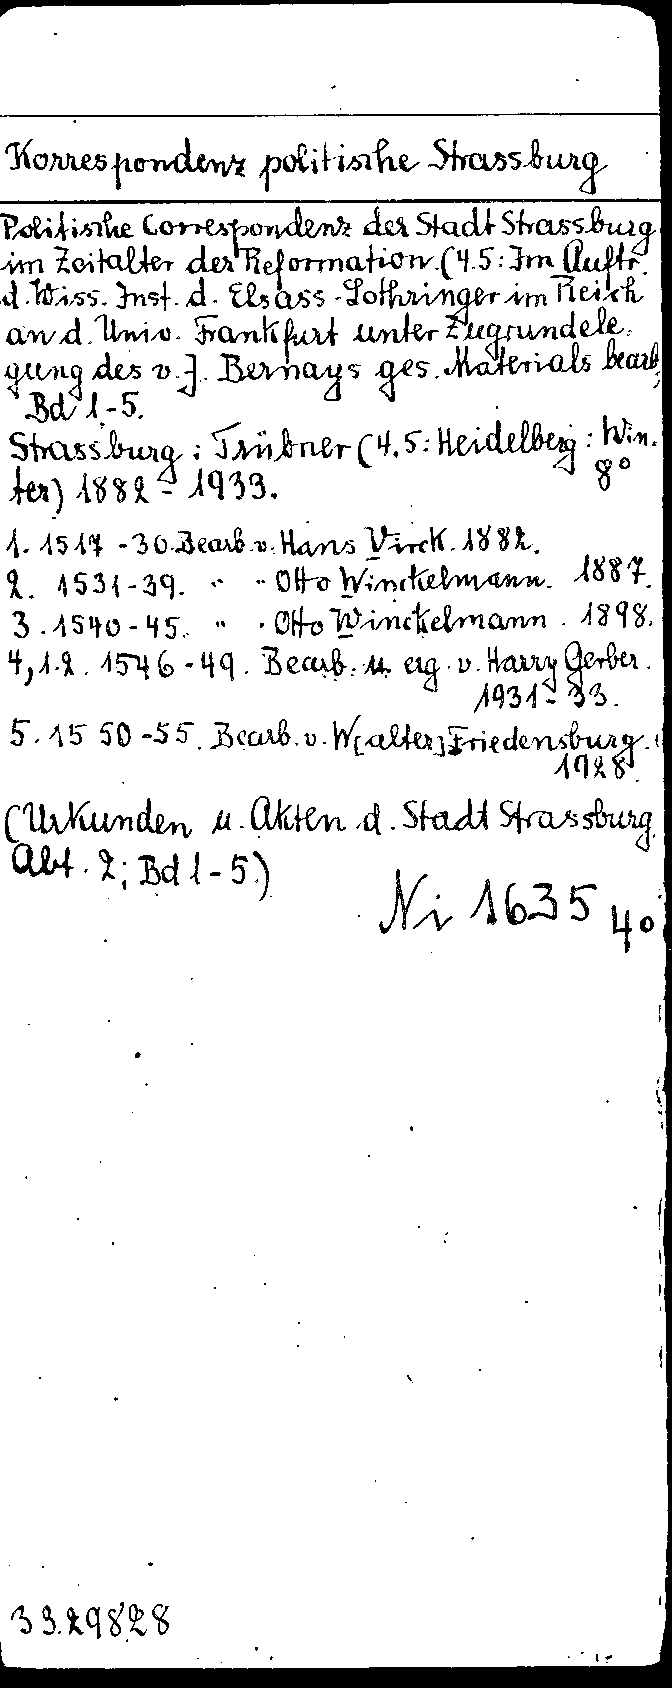 Korrespondenz politische Strassburg
Politische Correspondenz der Stadt Strassburg
im Zeitalter der Reformation. (4.5: Im Auftr.
d. Wiss. Inst. d. Elsass-Lothringer im Reich
an d. Univ. Frankfurt unter Zugrundele-
gung des v. J. Bernays ges. Materials bearb.)
Bd 1-5.
Strassburg: Trübner (4.5: Heidelberg: Win-
ter) 1882 - 1933. 8°
1. 1517 - 30. Bearb. v. Hans Virck. 1882.
2. 1531-39. " " Otto Winckelmann. 1887.
3. 1540-45. " " Otto Winckelmann. 1898.
4,1.2. 1546-49. Bearb. u. erg. v. Harry Gerber.
1931-33.
5. 1550-55. Bearb. v. W[alter] Friedensburg.
1928.
(Urkunden u. Akten d. Stadt Strassburg.
Abt. 2; Bd 1-5.)
Ni 1635 4°
33.29828